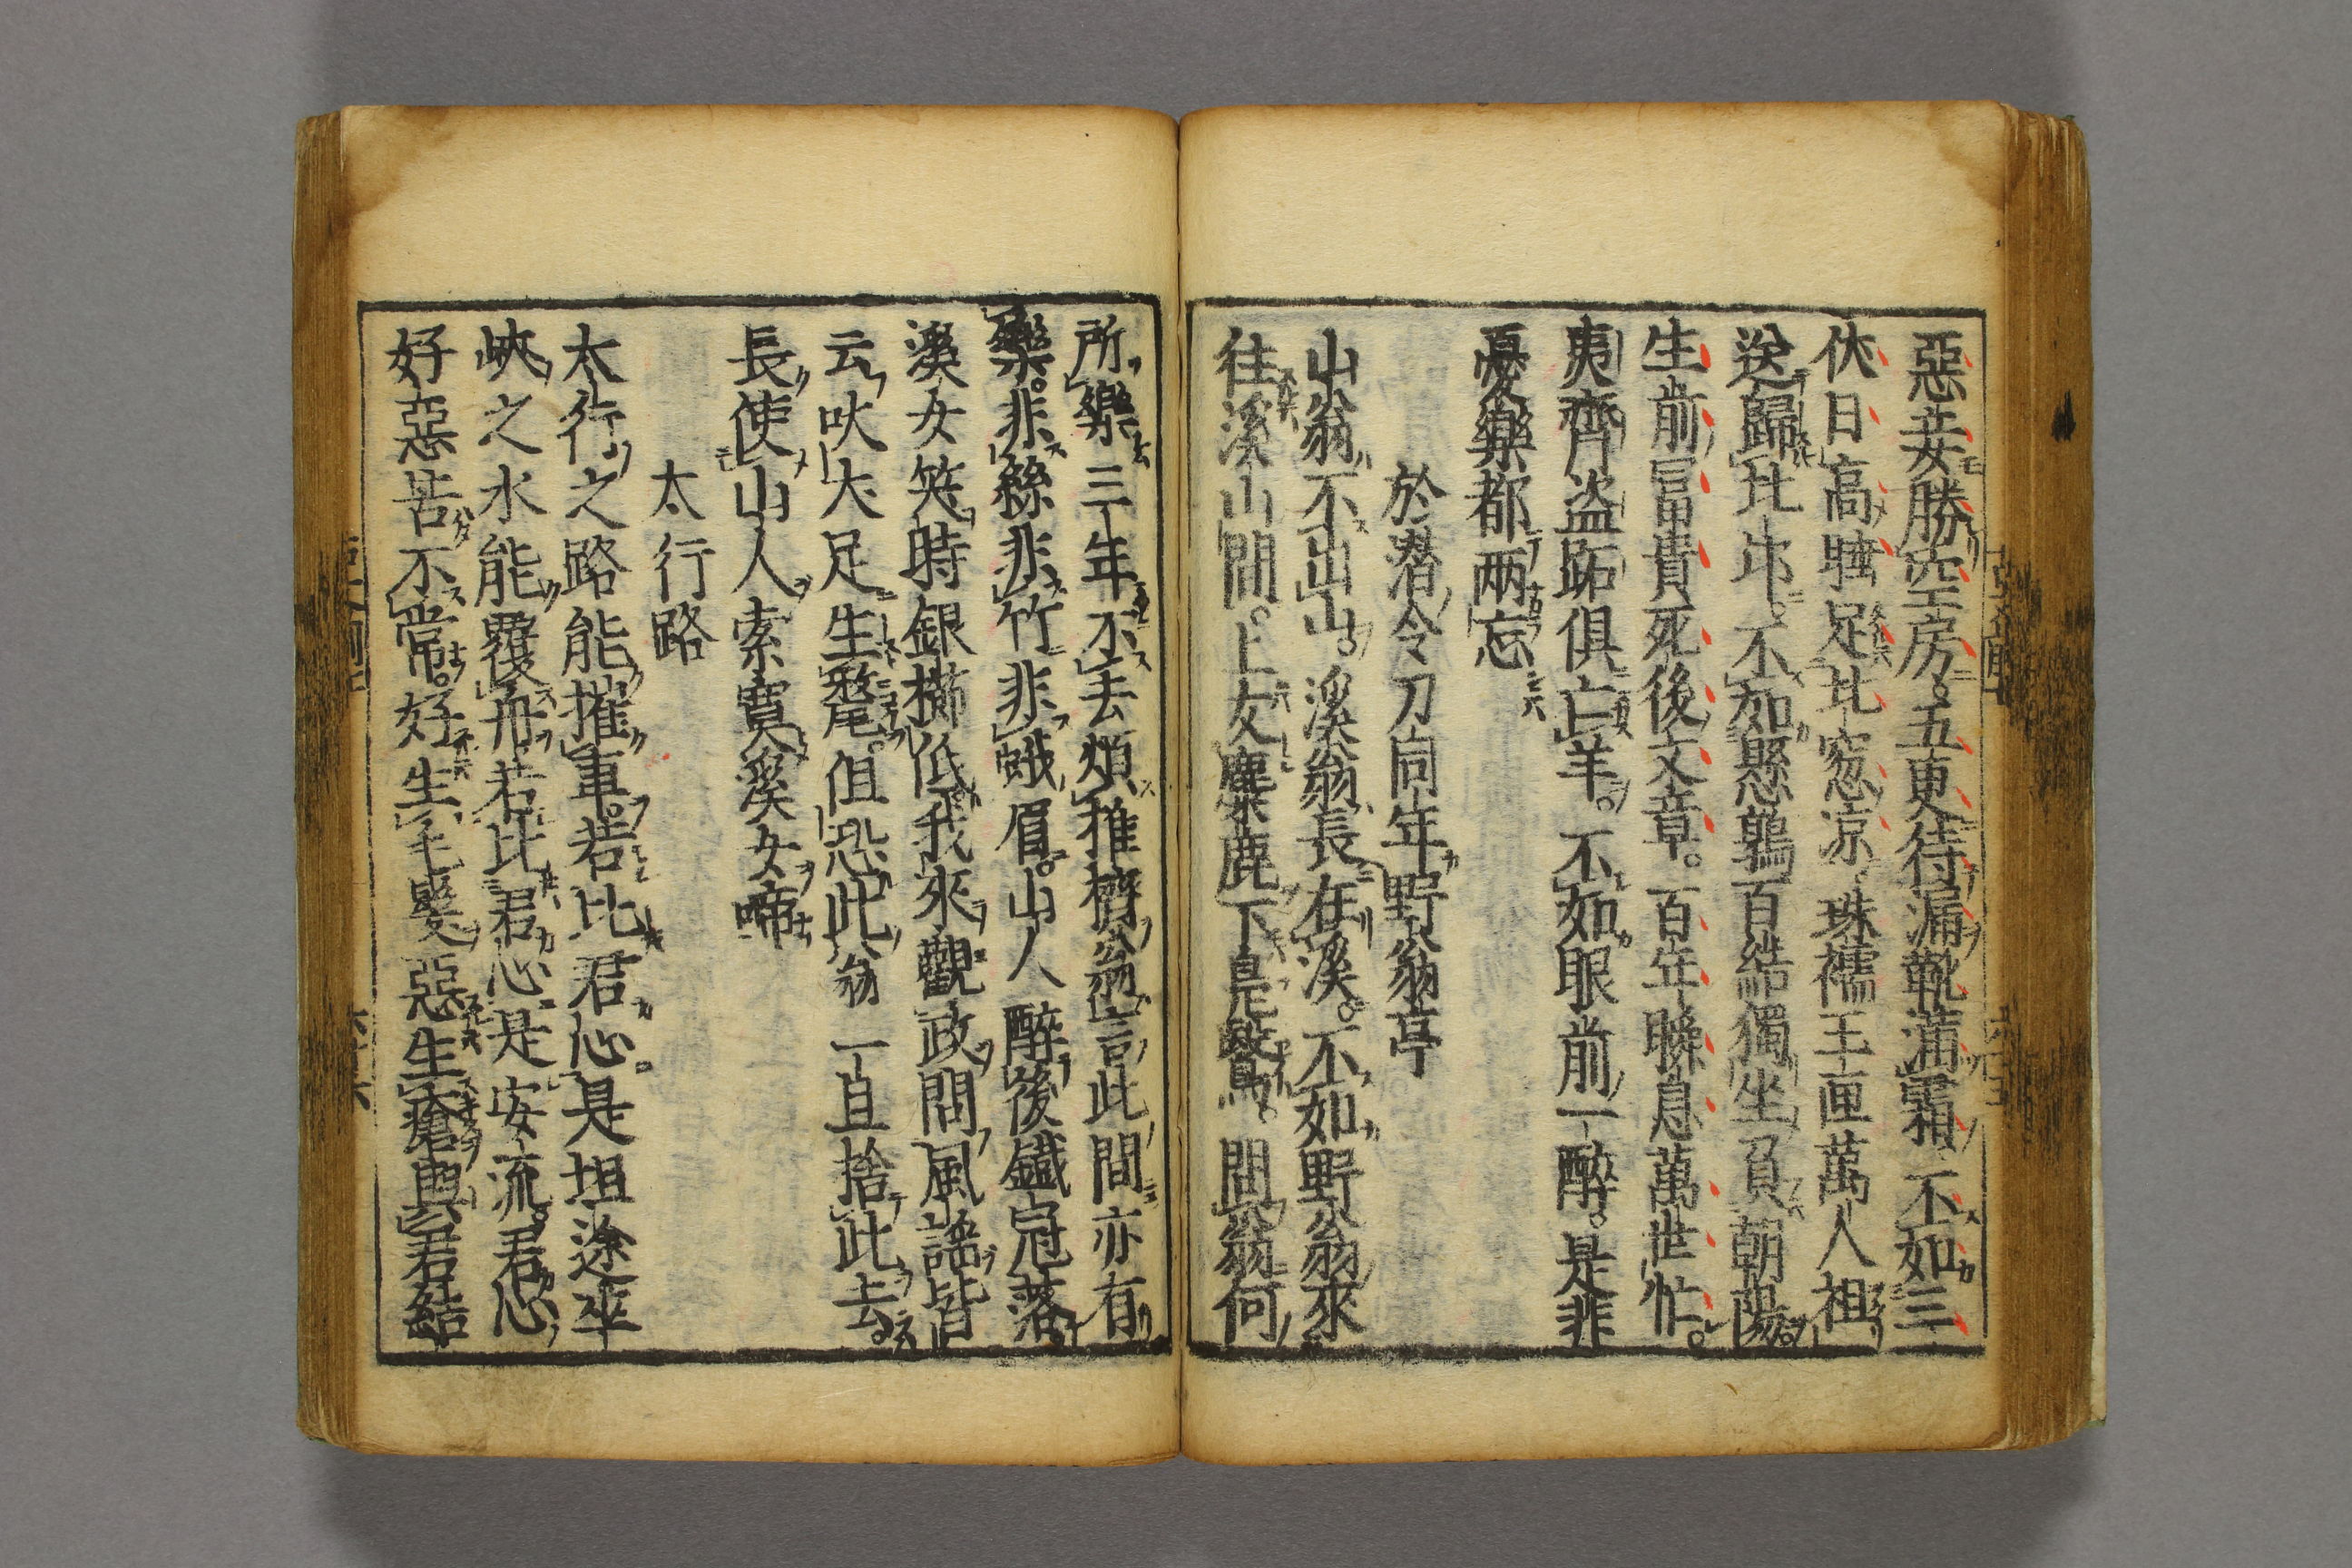 惡妾勝空房。五更待漏靴滿霜不如三
伏日高睡足北窓凉珠襦玉匣萬人祖
送歸北邙。不如懸鶉百結獨坐負朝陽
生前冨貴死後文章。百年瞬息萬世忙。
夷齊盗跖俱亡羊。不如眼前一醉。是非
憂樂都兩忘
於潜令刀同年野翁亭
山翁不出山。溪翁長在溪。不如野翁來
往溪山間。上友麋鹿下鳬鷖。問翁何
所樂三年不去煩推擠翁言此間亦有
樂。非絲非竹非蛾眉。山人醉後鐵冠落
溪女笑時銀櫛低我來觀政問風謡皆
云吠犬足生氂。但恐此翁一旦捨此去。
長使山人索寞溪女啼
太行路
太行之路能摧車。若比君心。是坦途巫
峽之水能覆舟若比君心是安流。君心
好惡苦不常。好生毛髮惡生瘡與君結